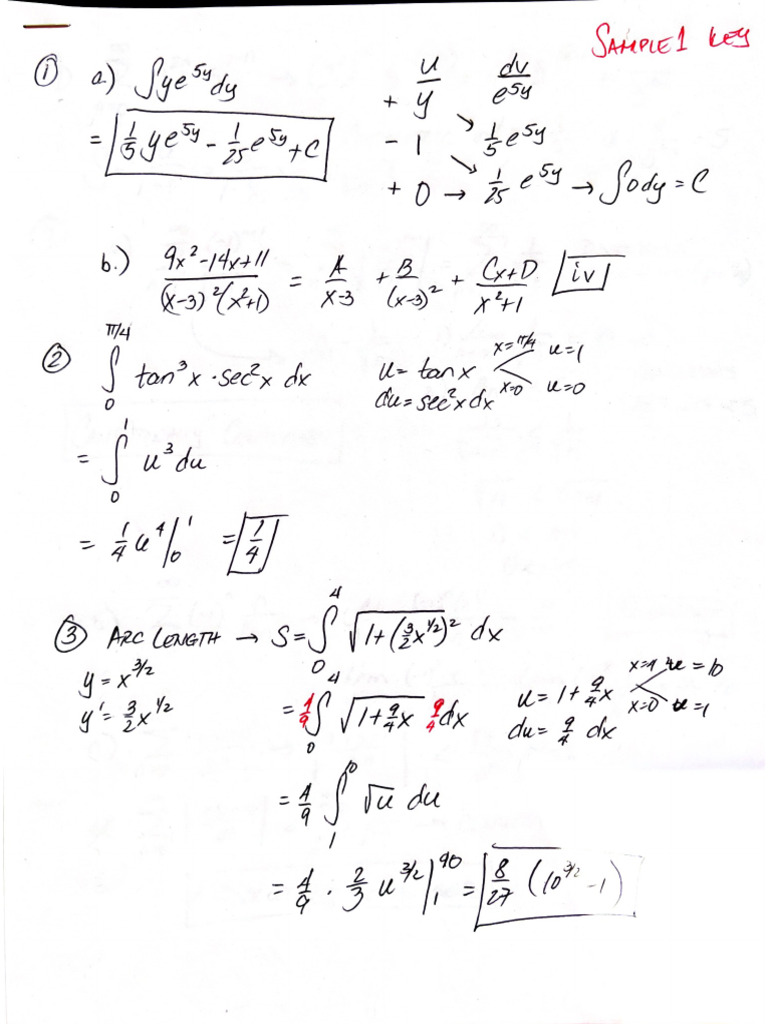 SAMPLE 1 KEY
① a.) ∫ye^{5y}dy
u dv
+ y e^{5y}
= 1/5 ye^{5y} - 1/25 e^{5y} + C
- 1 ↘ 1/5 e^{5y}
+ 0 → ↘ 1/25 e^{5y} → ∫0dy = C
b.) (9x²-14x+11)/((x-3)²(x²+1)) = A/(x-3) + B/(x-3)² + (Cx+D)/(x²+1) iv
② ∫_0^{π/4} tan³x·sec²x dx u = tanx x=π/4 u=1
du = sec²x dx x=0 u=0
= ∫_0^1 u³du
= 1/4 u⁴|_0^1 = 1/4
③ ARC LENGTH → S = ∫_0^4 √(1+(3/2 x^{1/2})²) dx
y = x^{3/2}
y' = 3/2 x^{1/2}
= 4/9 ∫_0^4 √(1+9/4 x) 9/4 dx u = 1+9/4 x x=4 u=10
du = 9/4 dx x=0 u=1
= 4/9 ∫_1^{10} √u du
= 4/9 · 2/3 u^{3/2}|_1^{10} = 8/27 (10^{3/2} - 1)